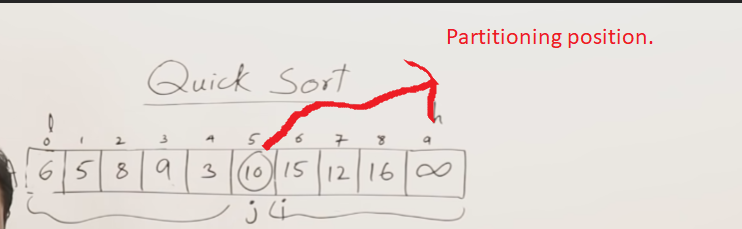 Partitioning position.
Quick Sort
l h
0 1 2 3 4 5 6 7 8 9
6 5 8 9 3 10 15 12 16 ∞
j i